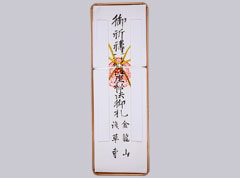 御祈禱 御札
金龍山
浅草寺